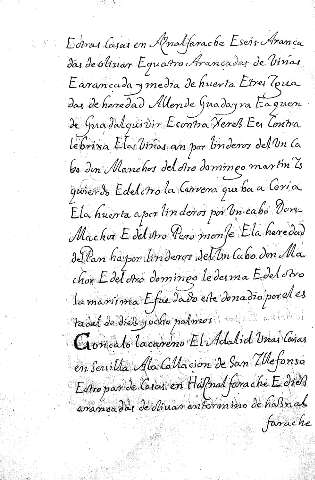 Eotras Casas en Aznalfarache Eseis Aranca
das de olivar Equatro Arancadas de Viñas
Earancada y media de huerta Etres Ygua
das de heredad Allende Guadayra Eaquen
de Guadalquivir Econtra Xerez Ees Contra
lebrixa Elas Viñas an por linderos del Un Ca
bo don Manchos del otro domingo martin Ys
quierdo E del otro la Carrera que ba a Coria
Ela huerta a por linderos por Un cabo Don
Machor E del otro Pero monje Ela heredad
de Pan ha por linderos del Un Cabo don Ma
chor E del otro domingo ledesma E del otro
la marisma Efue dado este donadio por el es
tadal de diez y ocho palmos
Gonçalo lacareno El Adalid Unas Casas
en Sevilla Ala Collacion de San Yllefonso
Eotro par de Casas en Haznalfarache E diez
arancadas de olivar en termino de haznal
farache